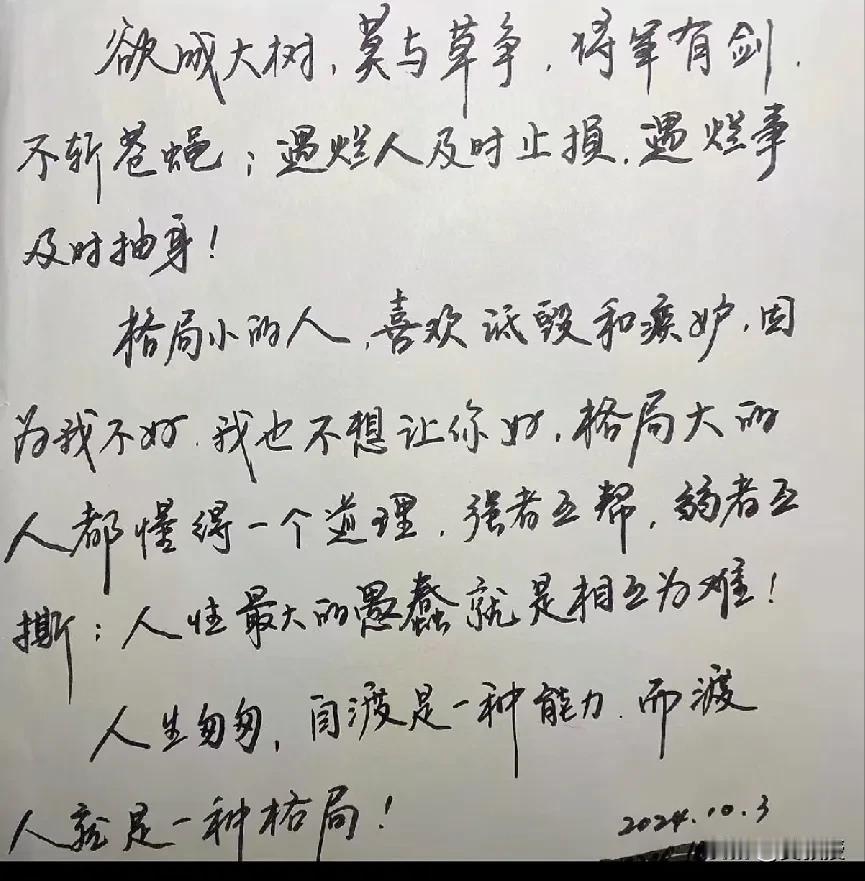 欲成大树,莫与草争,将军有剑.
不斩苍蝇;遇烂人及时止損.遇烂事
及时抽身!
格局小的人,喜欢诋毁和疾妒.因
为我不好.我也不想让你好.格局大的
人都懂得一个道理.强者互帮,弱者互
撕:人性最大的愚蠢就是相互为难!
人生匆匆,自渡是一种能力.而渡
人就是一种格局!
2024.10.3